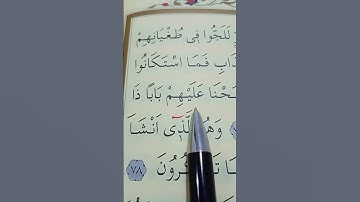 لَلَجُّوا فٖي طُغْيَانِهِمْ
ذَابِ فَمَا اسْتَكَانُوا
عَلَيْهِمْ بَابًا ذَا
وَهُوَ الَّذٖٓي اَنْشَاَ
٧٨